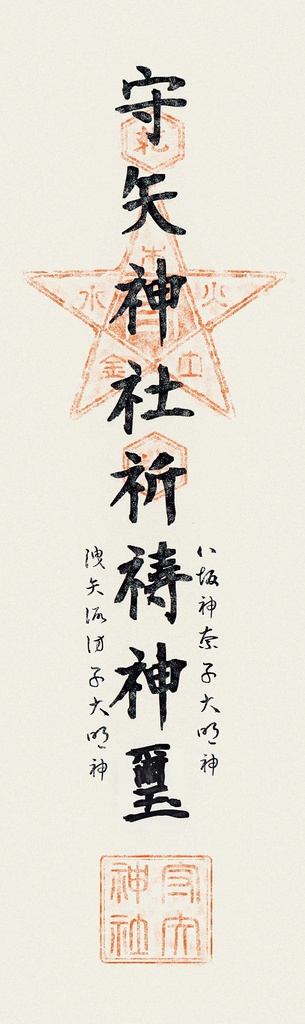 八坂神奈子大明神
守矢神社祈祷神璽
洩矢諏訪子大明神
札
木
火
土
金
水
守矢
神社